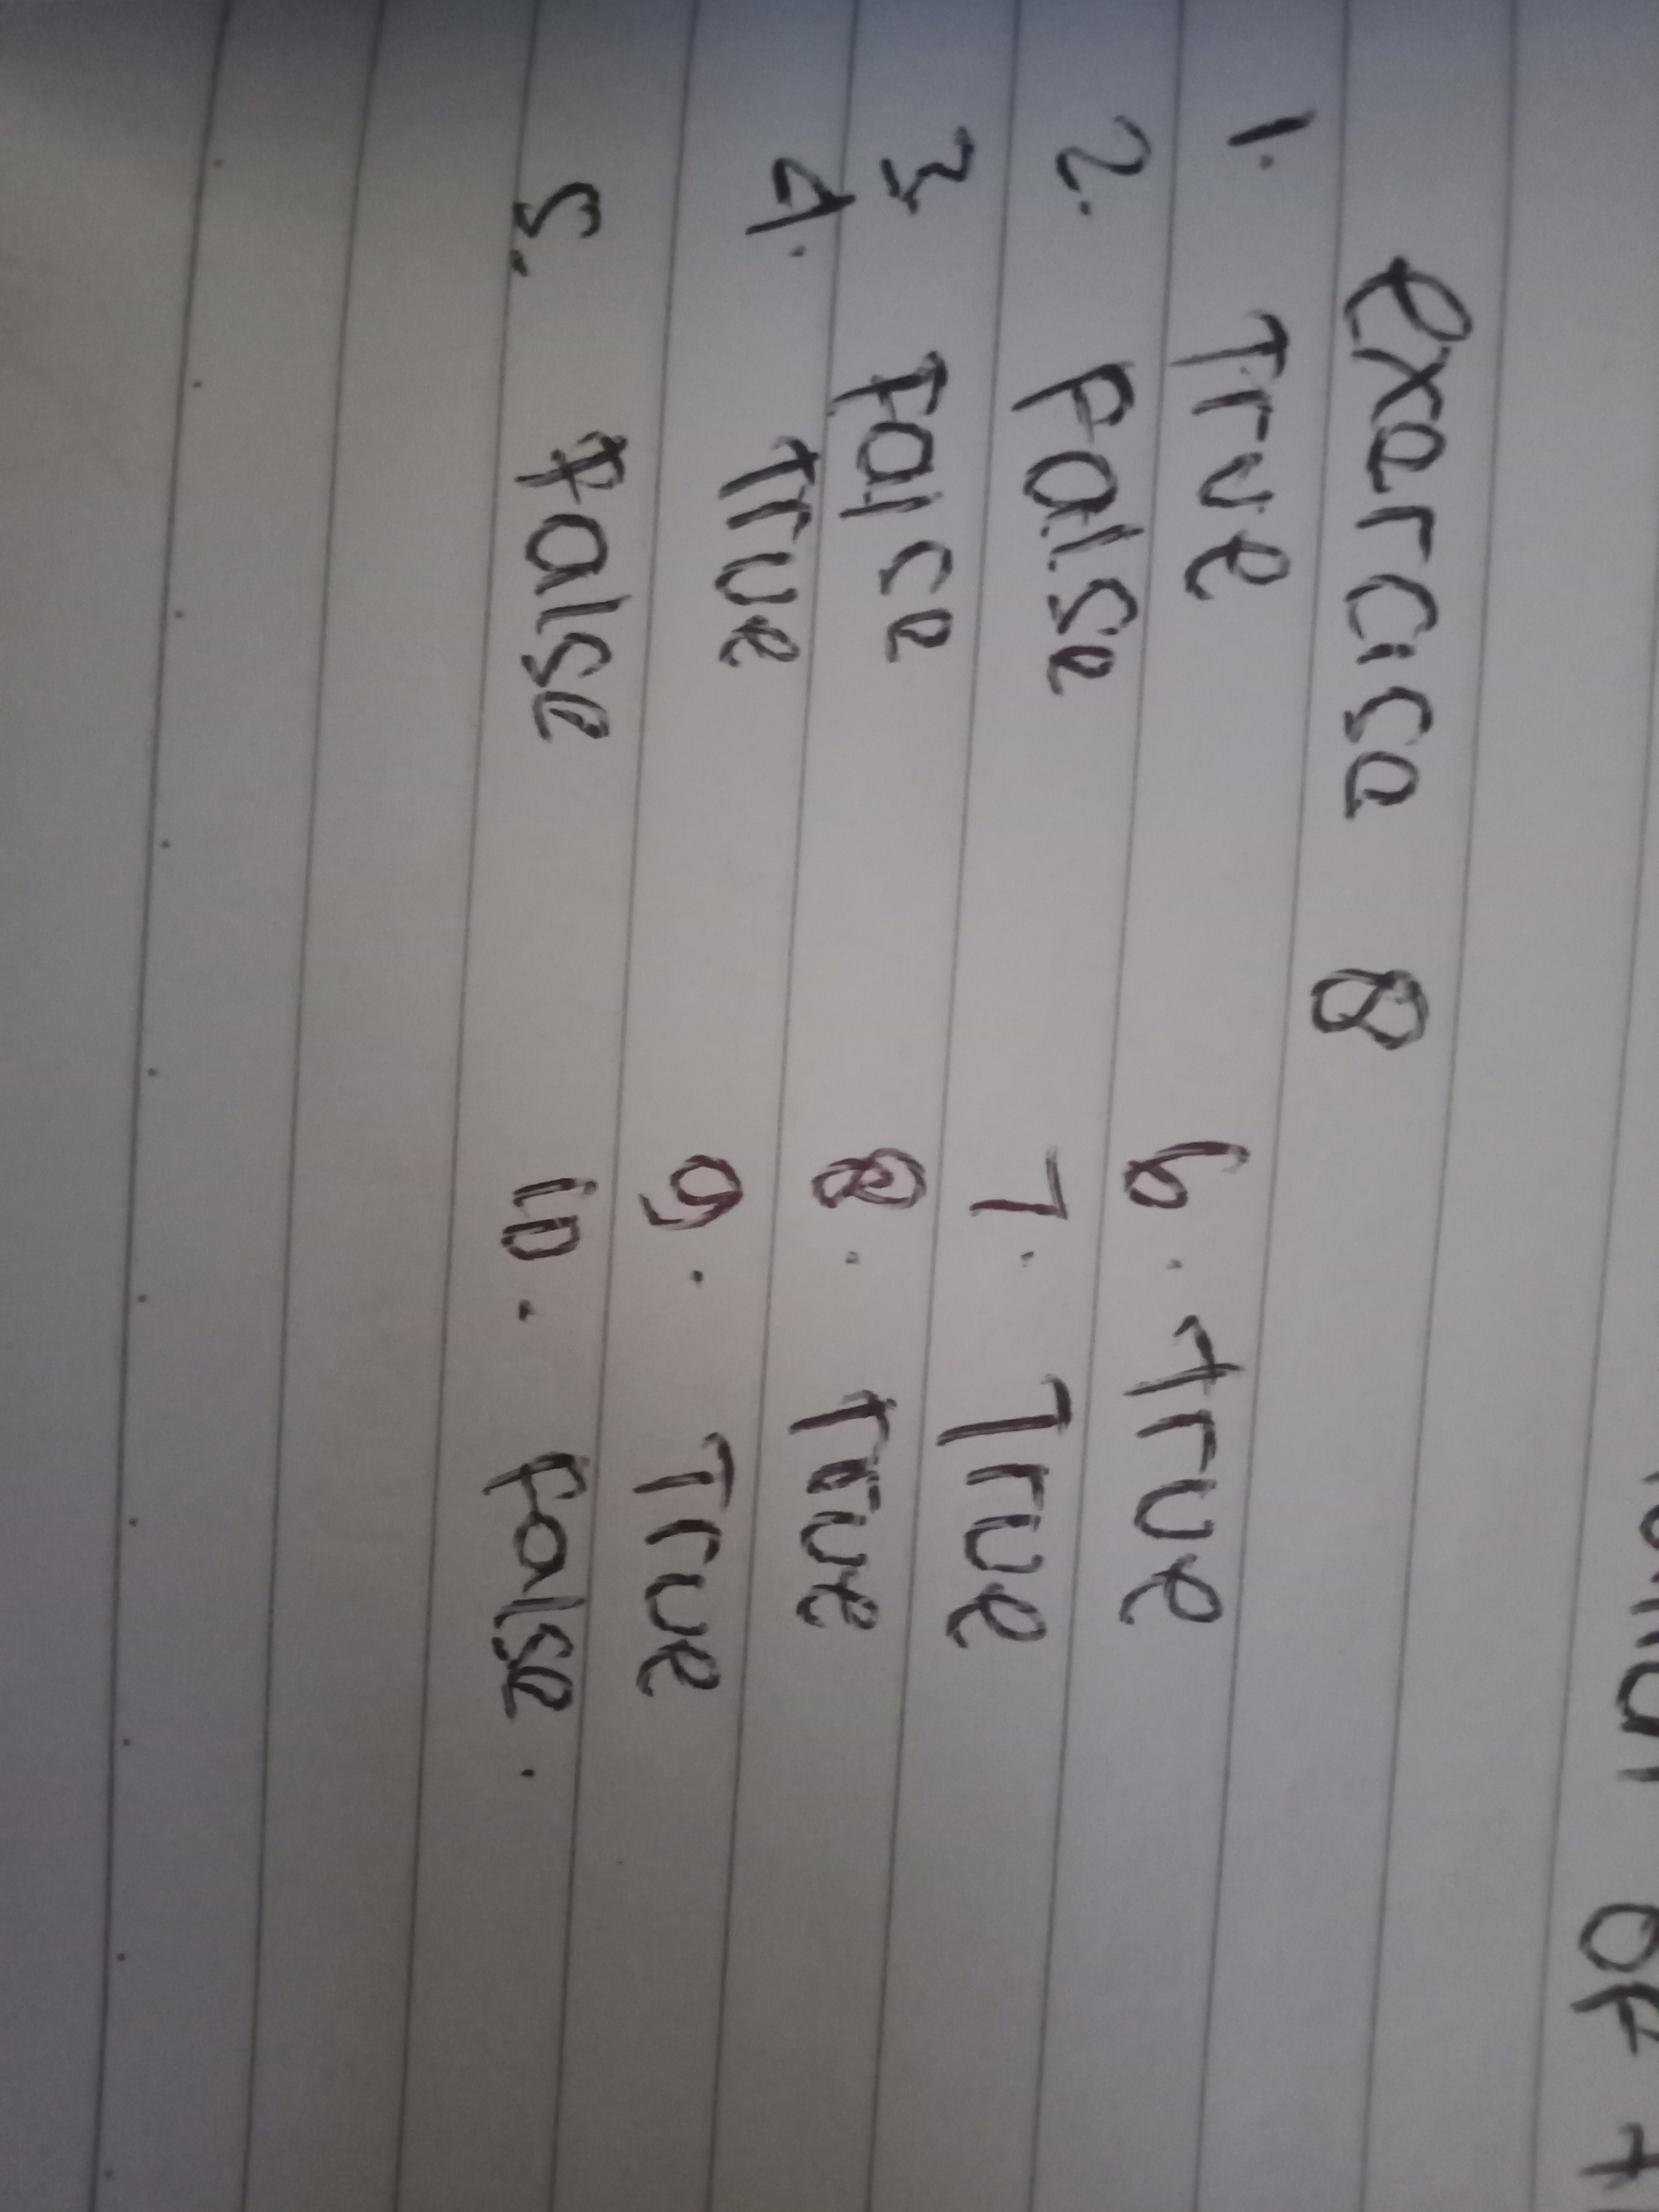 of
exercise 8
1. True
2. False
3 False
4. True
5. False
6. true
7. True
8. True
9. True
10. False.